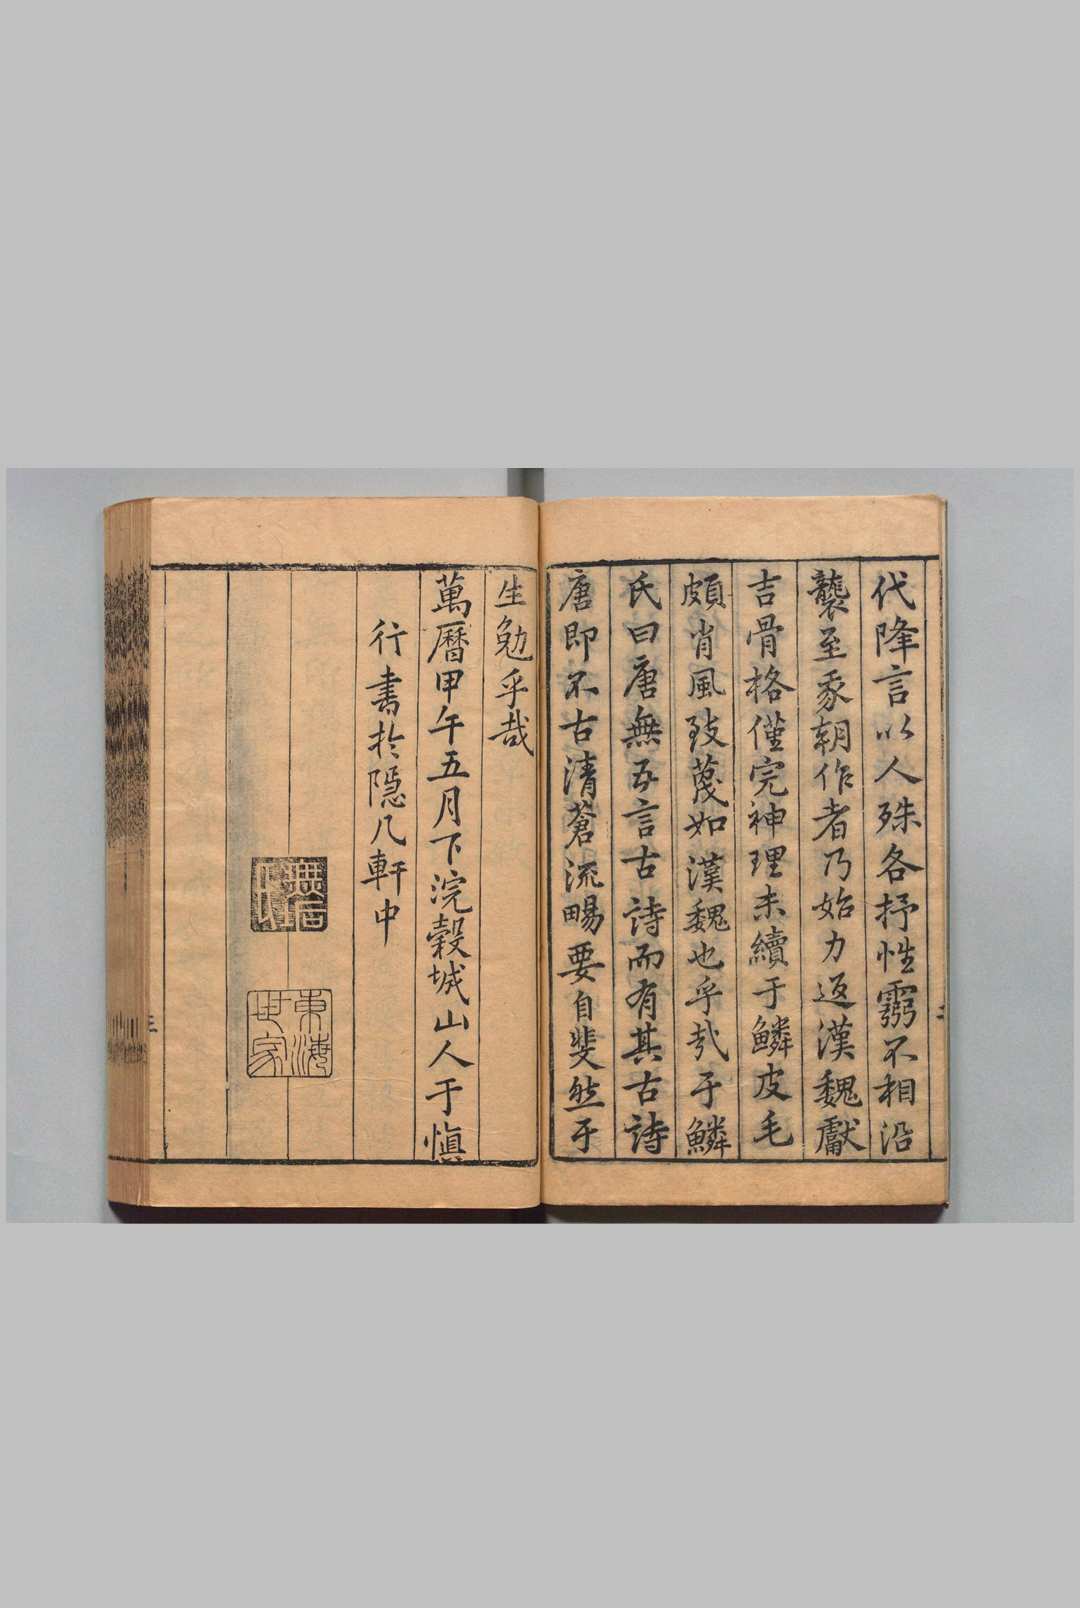 代降言以人殊各抒性靈不相沿
襲至我朝作者乃始力返漢魏獻
吉骨格僅完神理未續于鱗皮毛
頗肖風致蔑如漢魏也乎哉于鱗
氏曰唐無五言古詩而有其古詩
唐即不古清蒼流暢要自斐然于
生勉乎哉
萬曆甲午五月下浣穀城山人于慎
行書於隱几軒中
無垢
氏
東海
世家
三